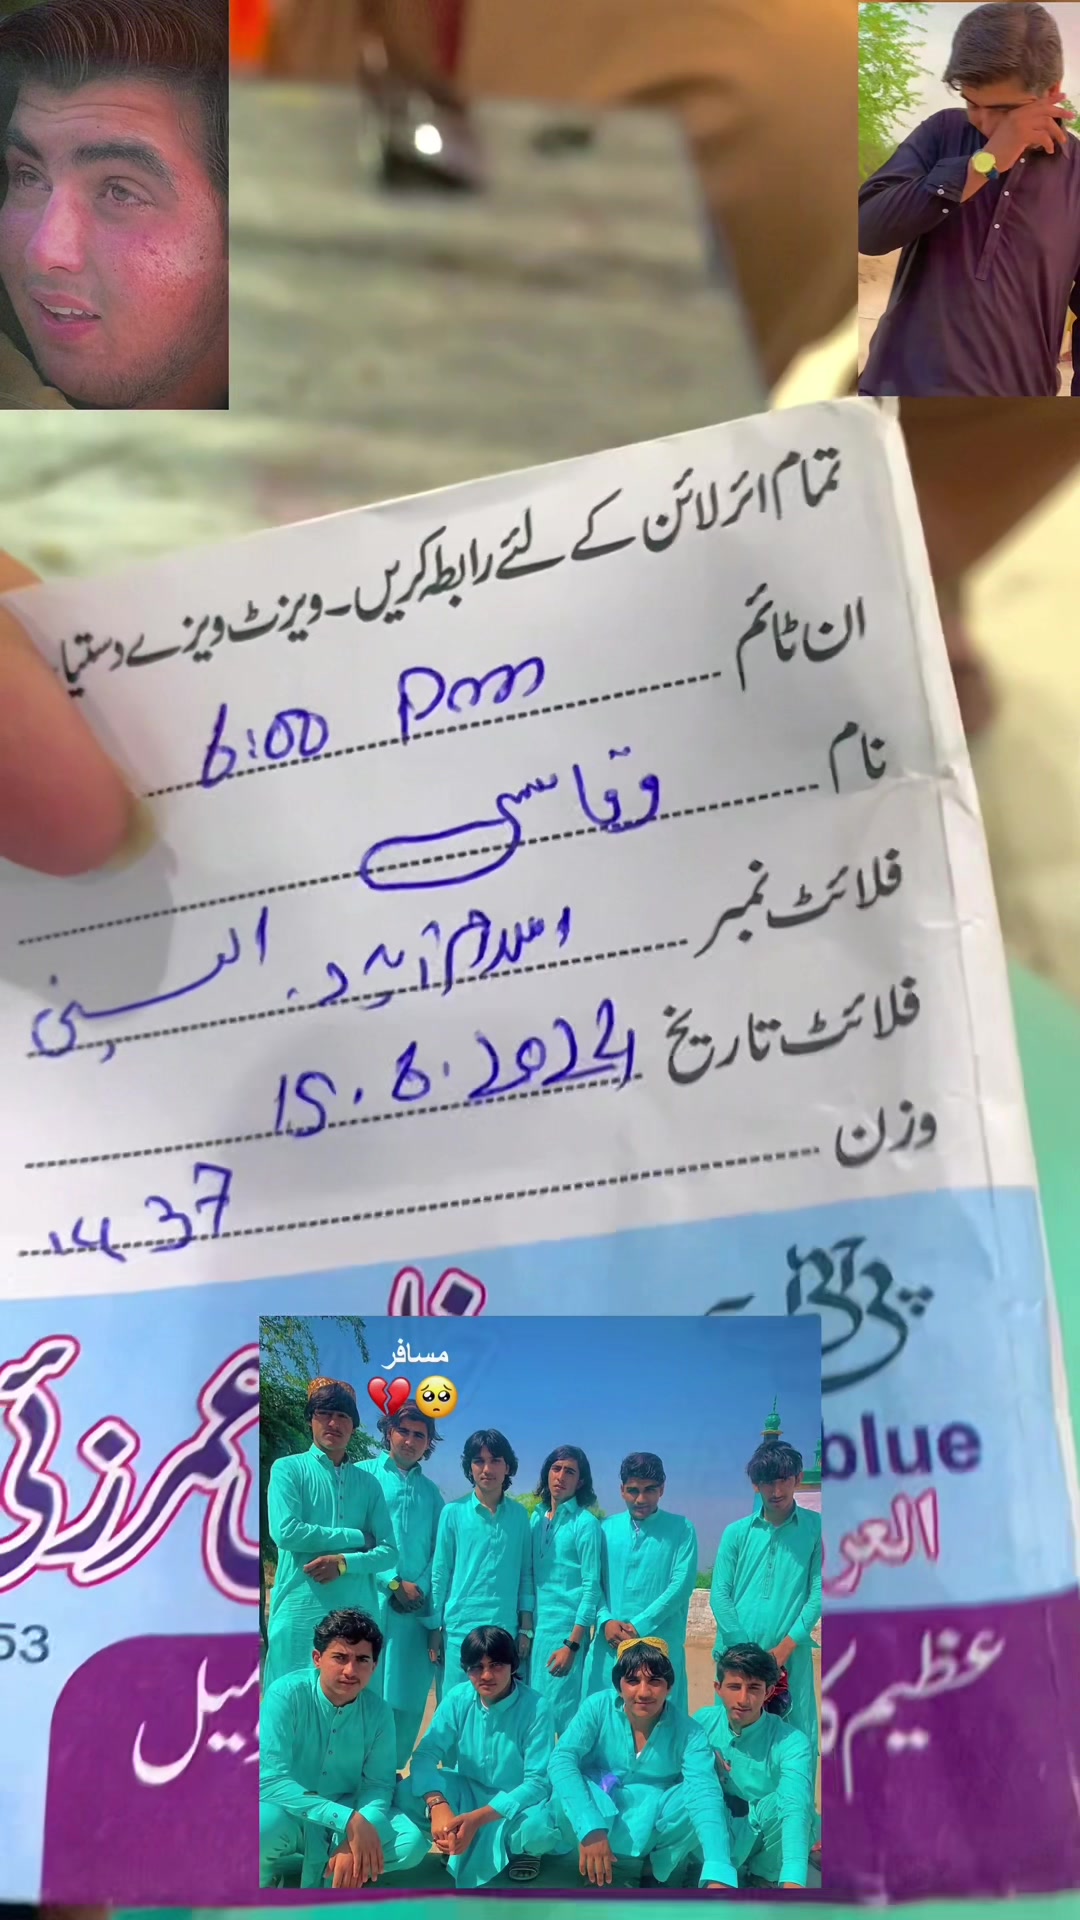 تمام ائرلائن کے لئے رابطہ کریں۔ ویزٹ ویزے دستیا
ان ٹائم 6:00 pm
نام وقاس
فلائٹ نمبر اسلام آباد
فلائٹ تاریخ 15.6.2024
وزن 37
پی آئی
عمرزئی
blue
العر
53
عظیم
میل
مسافر
💔🥺